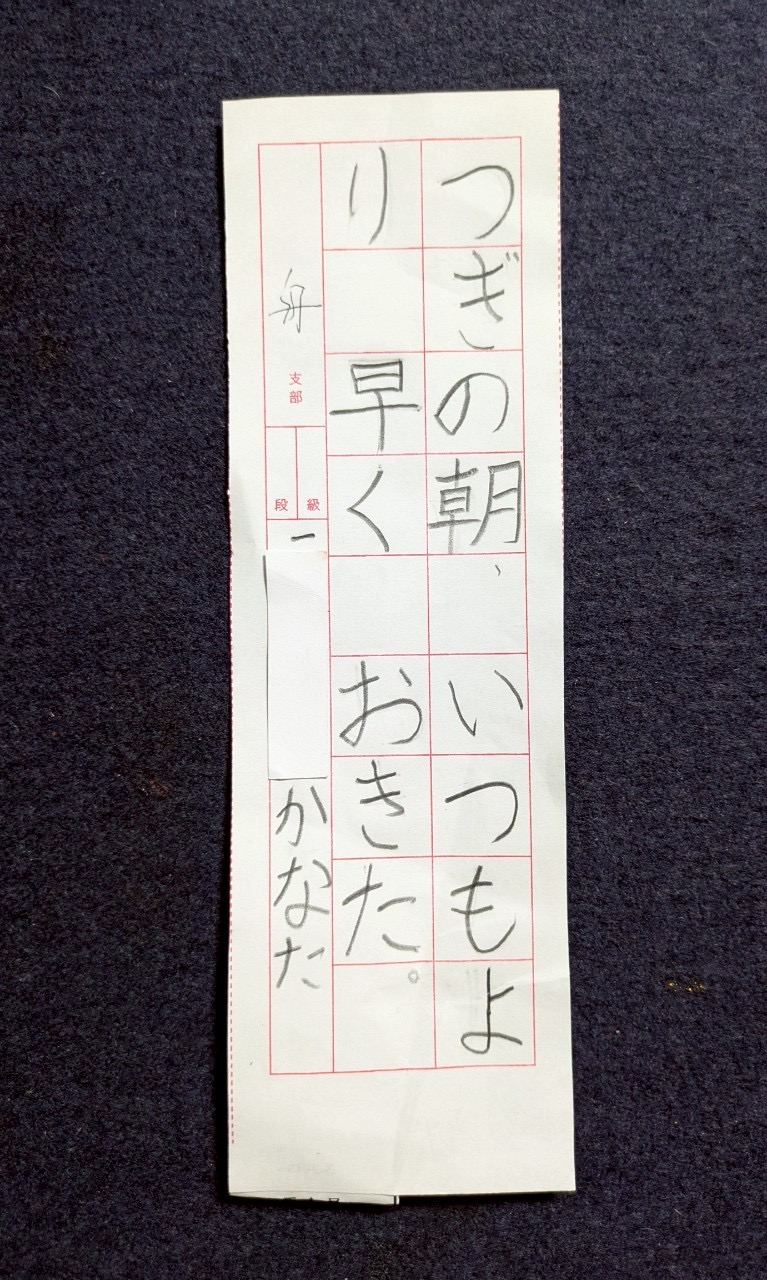 つぎの朝、いつもよ
り 早く おきた。
舟 支部
級
段
一 かなた